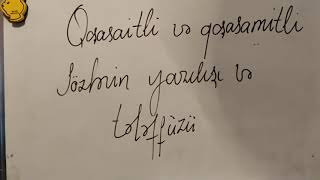 Qoşasaitli və qoşasamitli
sözlərin yazılışı və
tələffüzü